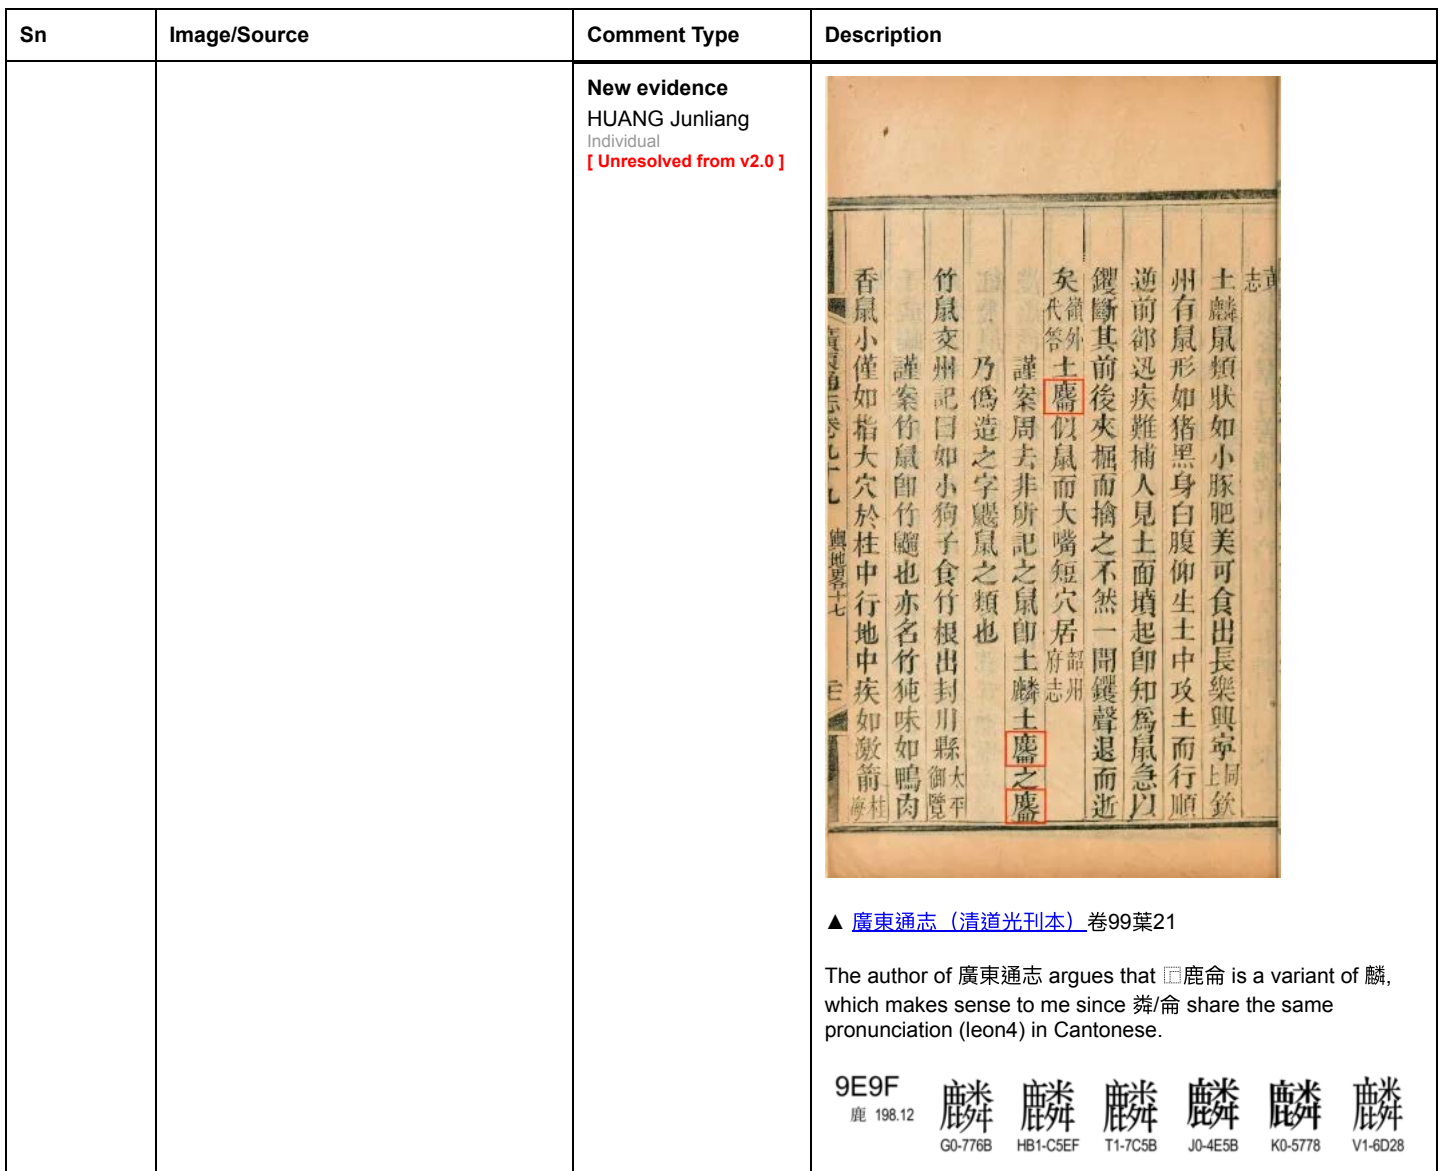 Sn
Image/Source
Comment Type
Description
New evidence
HUANG Junliang
Individual
[ Unresolved from v2.0 ]
志
土麟鼠類狀如小豚肥美可食出長樂興寧同上欽
州有鼠形如猪黑身白腹仰生土中攻土而行順
逆前郤迅疾難捕人見土面墳起卽知爲鼠急以
钁斷其前後夾掘而擒之不然一聞钁聲退而逝
矣嶺外代答土⿸鹿侖似鼠而大嘴短穴居韶州府志
謹案周去非所記之鼠卽土麟土⿸鹿侖之⿸鹿侖
乃僞造之字鼴鼠之類也
竹鼠交州記曰如小狗子食竹根出封川縣太平御覽
謹案竹鼠卽竹䶉也亦名竹㹠味如鴨肉
香鼠小僅如指大穴於柱中行地中疾如激箭桂海
廣東通志卷九十九
輿地畧十七
▲ 廣東通志（清道光刊本）卷99葉21
The author of 廣東通志 argues that ⿸鹿侖 is a variant of 麟,
which makes sense to me since 粦/侖 share the same
pronunciation (leon4) in Cantonese.
9E9F
鹿 198.12
麟 麟 麟 麟 麟 麟
G0-776B HB1-C5EF T1-7C5B J0-4E5B K0-5778 V1-6D28